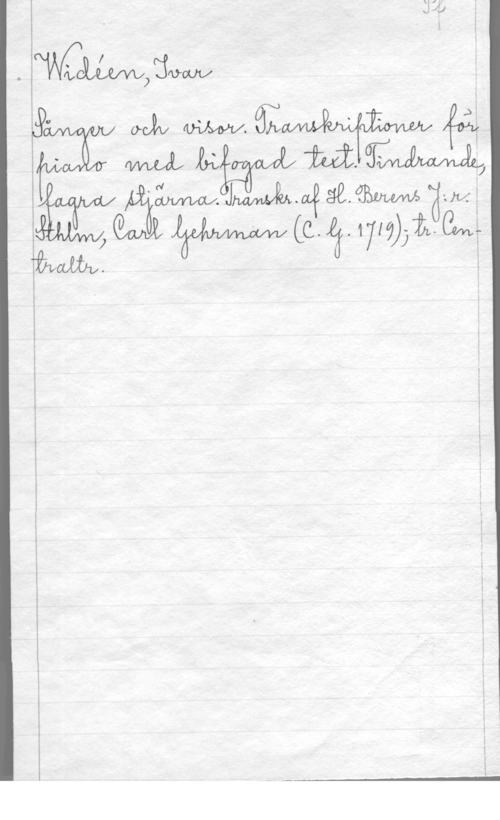 Pf
Widéen, Ivar
Sånger och visor. Transkriptioner för
piano med bifogad text. Tindrande,
fagra stjärna. Transkr. af H. Berens J:r.
Sthlm, Carl Gehrman (C. G. 1719); tr. Cen-
traltr.